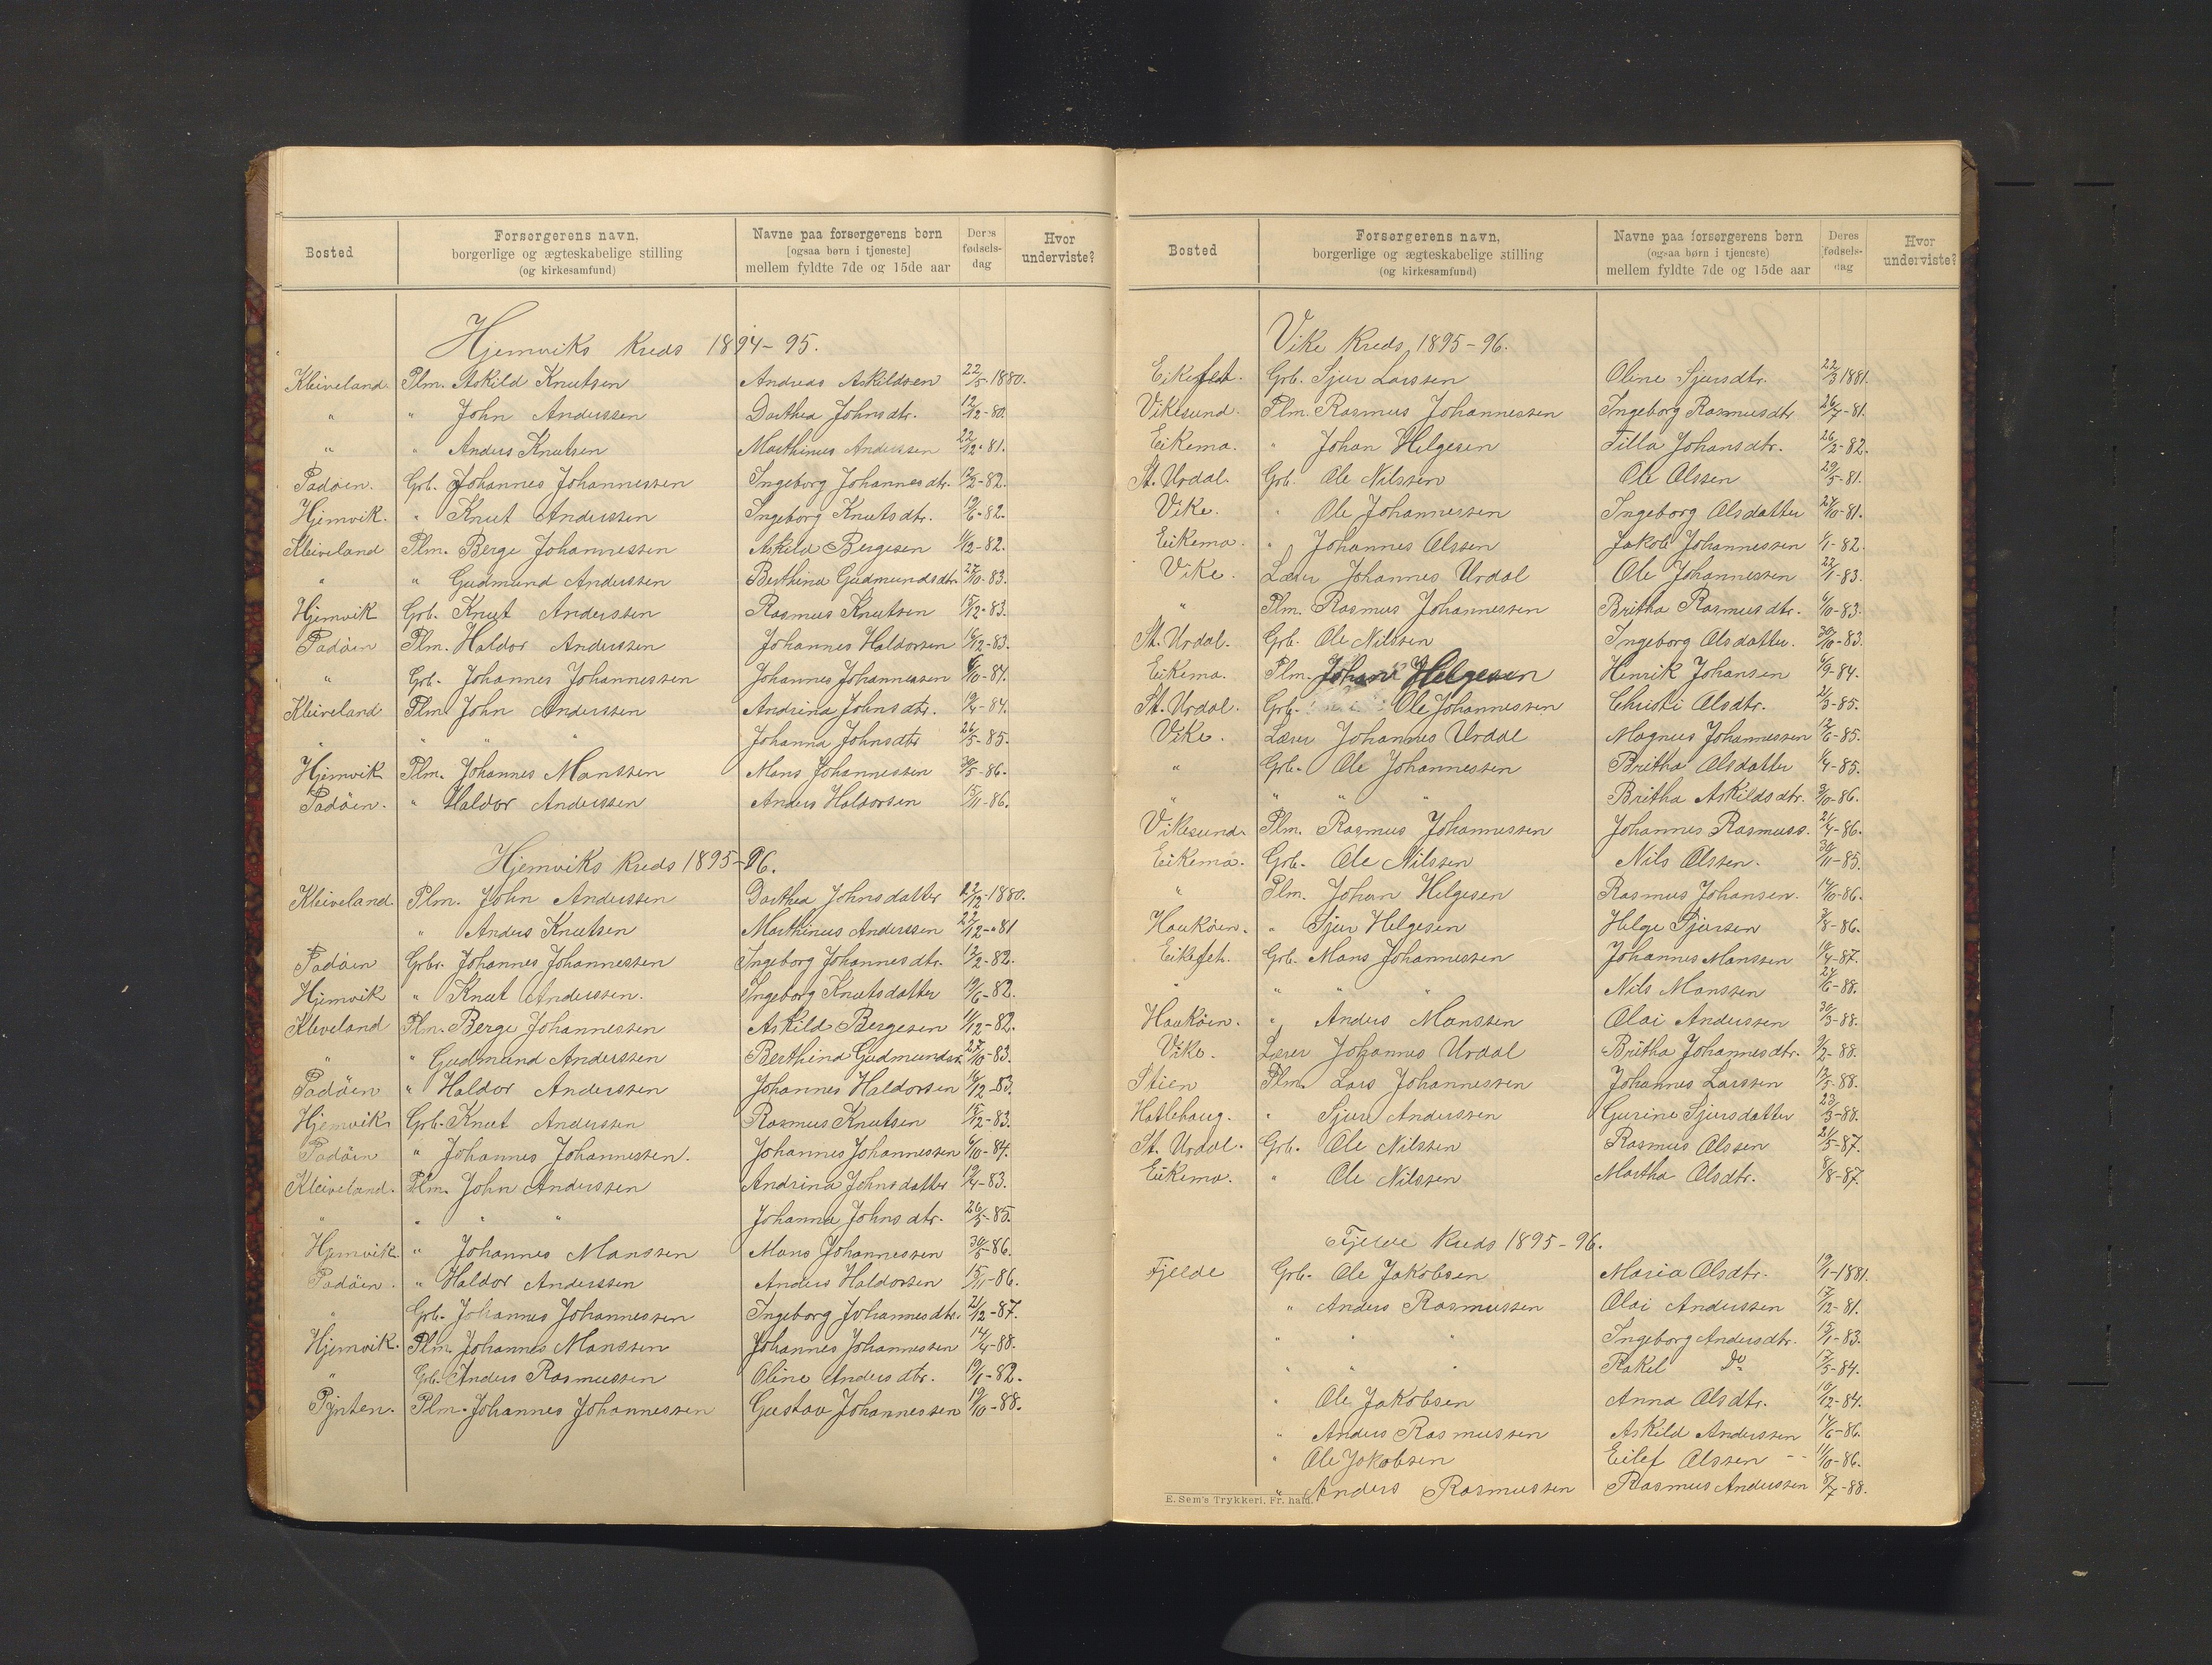 Bosted | Forsørgerens navn, borgerlige og ægteskabelige stilling (og kirkesamfund) | Navne paa forsørgerens børn [ogsaa børn i tjeneste] mellem fyldte 7de og 15de aar | Deres fødselsdag | Hvor underviste?
Hjemviks Kreds 1894-95.
Kleiveland. Plm. Askild Knutsen Andreas Askildsen 22/5-1880.
" " John Anderssen Dorthea Johnsdtr. 12/12-80.
" " Anders Knutsen Marthinus Anderssen 22/12-81.
Padöen. Grb. Johannes Johannessen Ingeborg Johannesdtr. 12/2-82.
Hjemvik. " Knut Anderssen Ingeborg Knutsdtr. 19/6-82.
Kleiveland Plm. Berge Johannessen Askild Bergesen 11/12-82.
" " Gudmund Anderssen Berthina Gudmundsdtr. 27/10-83.
Hjemvik Grb. Knut Anderssen Rasmus Knutsen 15/12-83.
Padöen Plm. Haldor Anderssen Johannes Haldorsen 16/12-83.
" Grb. Johannes Johannessen Johannes Johannessen 6/10-84.
Kleiveland Plm. John Anderssen Andrina Johnsdtr. 19/4-84.
" " " " Johanna Johnsdtr 26/5-85.
Hjemvik Plm. Johannes Manssen Mons Johannessen 30/5-86.
Padöen. " Haldor Anderssen Anders Haldorsen 15/11-86.
Hjemviks Kreds 1895-96.
Kleiveland. Plm. John Anderssen Dorthea Johnsdatter 12/12-1880.
" Anders Knutsen Marthinus Anderssen 22/12-81
Padöen Grbr. Johannes Johannessen Ingeborg Johannesdtr. 12/2-82.
Hjemvik " Knut Anderssen. Ingeborg Knutsdatter 19/6-82.
Kleveland Plm. Berge Johannessen Askild Bergesen 11/12-82.
" " Gudmund Anderssen Berthina Gudmundsd. 27/10-83.
Padöen " Haldor Anderssen Johannes Haldorsen 16/12-83.
Hjemvik Grb. Knut Anderssen Rasmus Knutsen 15/12-83.
Padöen " Johannes Johannessen. Johannes Johannessen 6/10-84.
Kleiveland. Plm. John Anderssen Andrina Johnsdatter 19/4-83.
" " " " Johanna Johnsdtr. 26/5-85.
Hjemvik. " Johannes Manssen Mons Johannessen 30/5-86.
Padöen. " Haldor Anderssen Anders Haldorsen 15/11-86.
" Grb. Johannes Johannessen Ingeborg Johannesdtr. 21/12-87.
Hjemvik. Plm. Johannes Manssen Johannes Johannessen 14/4-88.
" Grb. Anders Rasmussen Oline Andersdtr. 19/1-82.
Pynten. Plm. Johannes Johannessen Gustav Johannessen 19/10-88.
Bosted | Forsørgerens navn, borgerlige og ægteskabelige stilling (og kirkesamfund) | Navne paa forsørgerens børn (ogsaa børn i tjeneste) mellem fyldte 7de og 15de aar | Deres fødselsdag | Hvor underviste?
Vike Kreds 1895-96.
Eikefet. Grb. Sjur Larssen Oline Sjursdtr. 22/3 1881.
Vikesund. Plm. Rasmus Johannessen Ingeborg Rasmusdtr 26/7-81.
Eikemo. " Johan Helgesen Tilla Johansdtr. 26/2-82.
St. Urdal. Grb. Ole Nilssen Ole Olssen 29/5-81.
Vike. " Ole Johannessen Ingeborg Olsdatter 24/10-81.
Eikemo. " Johannes Olssen Jakob Johannessen 1/1-82.
Vike. Lærer Johannes Urdal Ole Johannessen 22/1-83.
" Plm. Rasmus Johannessen Britha Rasmusdtr. 6/10-83.
St. Urdal. Grb. Ole Nilssen Ingeborg Olsdatter. 30/10-83.
Eikemo. Plm. Johan Helgesen Henrik Johansen 6/9-84.
St. Urdal. Grb. Ole Johannessen Christi Olsdtr. 2/3-85.
Vike. Lærer Johannes Urdal Magnus Johannessen 12/6-85.
" Grb. Ole Johannessen Britha Olsdatter 1/4-85.
" " " " Britha Askildsdtr. 9/10-86.
Vikesund. Plm. Rasmus Johannessen Johannes Rasmuss. 21/4-86.
Eikemo. Grb. Ole Nilssen Nils Olssen. 30/11-85.
" Plm. Johan Helgesen Rasmus Johansen. 14/10-86.
Hauköen. " Sjur Helgesen Helge Sjursen 3/8-86.
Eikefet. Grb. Mons Johannessen Johannes Monssen 19/4-87.
" " " " Nils Monssen 24/6-88.
Hauköen. " Anders Monssen Olai Anderssen 30/3-88.
Vike. Lærer Johannes Urdal Britha Johannesdtr. 9/2-88.
Stien Plm. Lars Johannessen Johannes Larssen 13/5-88.
Hatlehaug. " Sjur Anderssen Gurine Sjursdatter 23/3-88.
St. Urdal. Grb. Ole Nilssen Rasmus Olssen 21/5-87.
Eikemo. " Ole Nilssen Martha Olsdtr. 8/8-87.
Fjelde Kreds 1895-96.
Fjelde Grb. Ole Jakobsen Maria Olsdtr. 19/1-1881.
" Anders Rasmussen Olai Anderssen 17/12-81.
" " " Ingeborg Andersdtr. 15/1-83.
" " " Rakel Do 17/5-84.
" Ole Jakobsen Anna Olsdtr. 10/12-84.
" Anders Rasmussen Askild Anderssen 14/6-86.
" Ole Jakobsen Eilef Olssen 11/10-86.
" Anders Rasmussen Rasmus Anderssen 8/7-88.
E. Sem's Trykkeri. Fr. hald.